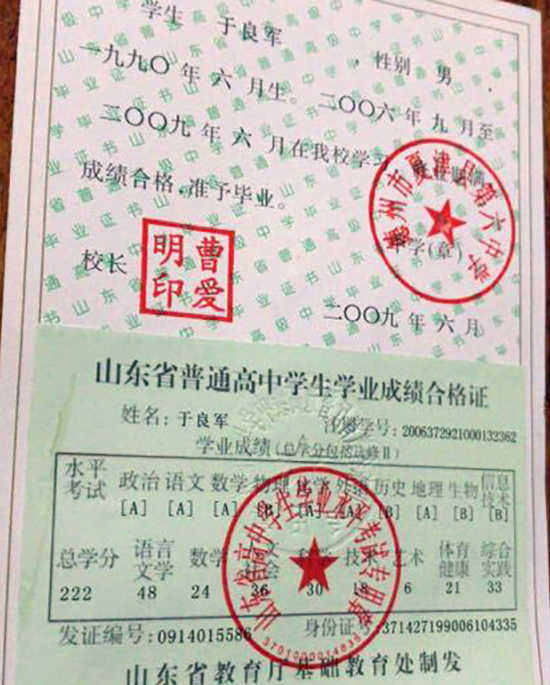 学生 于良军 性别 男
一九九〇年六月生。二〇〇六年九月至
二〇〇九年六月在我校学习
成绩合格,准予毕业。
德州市夏津县第六中学
中学(章)
校长
曹爱明印
二〇〇九年六月
山东省普通高中学生学业成绩合格证
姓名:于良军 注册学号:2006372921000132362
学业成绩(总学分包括选修Ⅱ)
水平考试 政治 语文 数学 物理 化学 历史 地理 生物 信息技术
[A] [A] [A] [B] [B] [A] [B] [B]
总学分 语言文学 数学 技术 艺术 体育健康 综合实践
222 48 24 36 30 18 6 21 33
发证编号:0914015586 身份证号:371427199006104335
山东省教育厅基础教育处制发